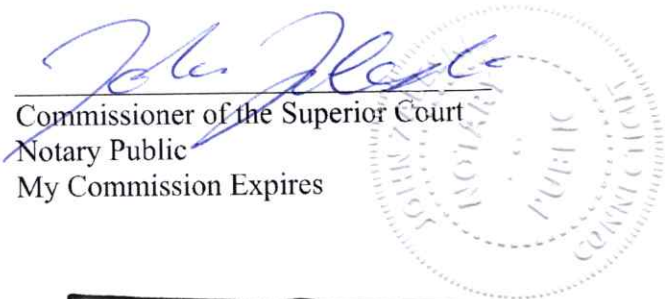 Commissioner of the Superior Court
Notary Public
My Commission Expires
JOHN
NOTARY
PUBLIC
CONNECTICUT